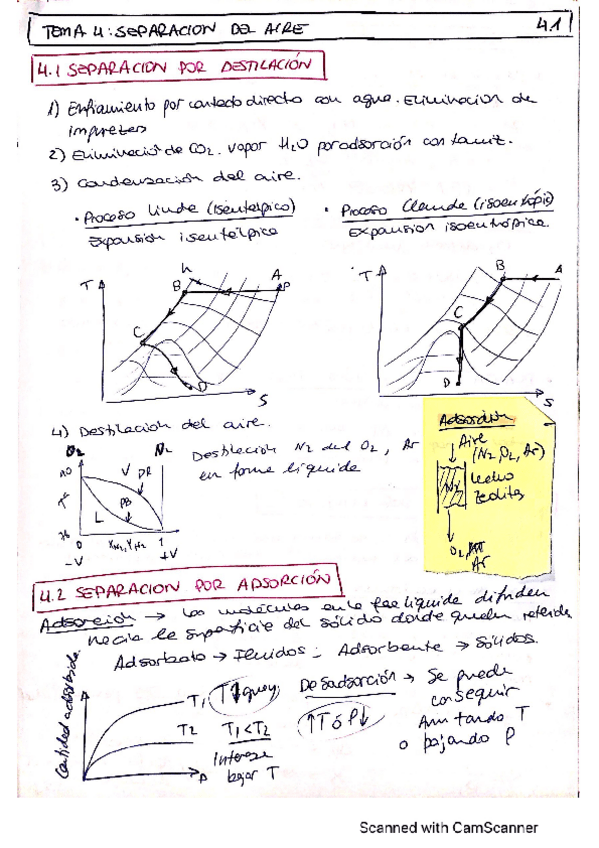 TEMA 4: SEPARACION DEL AIRE
4.1
4.1 SEPARACION POR DESTILACIÓN
1) Enfriamiento por contacto directo con agua. Eliminacion de
impurezas
2) Eliminación de CO2. vapor H2O por adsorción con tamiz.
3) Condensación del aire.
• Proceso Linde (isentelpico)
Expansion isentelpica
• Proceso Claude (isoentrópico)
Expansion isoentrópica.
T
h
B
A
P
C
D
S
T
B
A
C
D
S
4) Destilación del aire.
O2
N2
V
PR
PB
L
0
XN2, YN2
1
-V
+V
Destilación N2 del O2, Ar
en forma líquida
Adsorción
Aire
(N2, O2, Ar)
Lecho
Zeolitas
N2
O2,
Ar
4.2 SEPARACION POR ADSORCIÓN
Adsorción → Las moléculas en la fase líquida difunden
hacia la superficie del sólido donde quedan retenidas
Adsorbato → Fluidos; Adsorbente → Sólidos.
Cantidad adsorbida.
T1
T2
P
T1 < T2
Interesa
bajar T
Desadsorción → Se puede
conseguir
Aumtando T
o bajando P
↑T ó P↓
Scanned with CamScanner